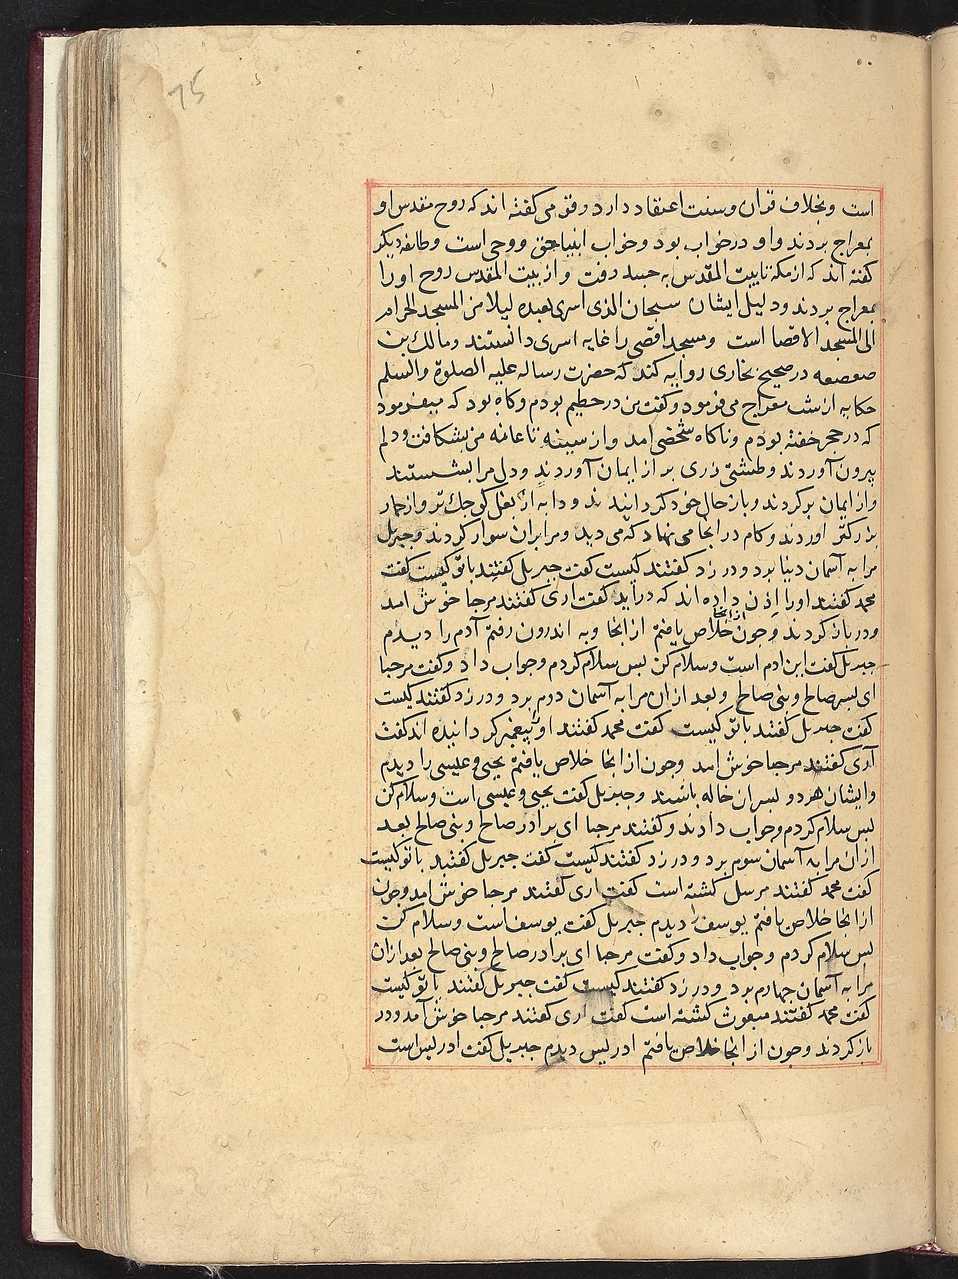 75
است و بخلاف قران و سنت اعتقاد دارد و قومی کفته اند که روح مقدس او
بمعراج بردند و او در خواب بود و خواب انبیا حق و وحی است و طایفه دیکر
کفته اند که از مکه تا بیت المقدس به جسد رفت و از بیت المقدس روح او را
بمعراج بردند و دلیل ایشان سبحان الذی اسری بعبده لیلا من المسجد الحرام
الی المسجد الاقصا است و مسجد اقصی را غایه اسری دانستند و مالک بن
صعصعه در صحیح بخاری روایه کند که حضرت رساله علیه الصلوة والسلم
حکایه از شب معراج می فرمود و کفت من در حطیم بودم و کاه بود که میفرمود
که در حجر خفته بودم و ناکاه شخصی امد و از سینه تا عانه من بشکافت و دلم
بیرون آوردند و طشتی زری پر از ایمان آوردند و دل مرا بشستند
و از ایمان پر کردند و باز حال خود کردانیدند و دابه از بغل کوجک تر و از حمار
بزرکتر اوردند و کام در انجا می نهاد که می دید و مرا بران سوار کردند و جبریل
مرا به آسمان دنیا برد و در زد کفتند کیست کفت جبریل کفتند با تو کیست کفت
محمد کفتند او را اذن داده اند که دراید کفت اری کفتند مرحبا خوش امد
و در باز کردند و جون از انجا خلاص یافتم از انجا و به اندرون رفتم آدم را دیدم
جبریل کفت این ادم است و سلام کن بس سلام کردم و جواب داد و کفت مرحبا
ای پسر صالح و نبی صالح و بعد از ان مرا به آسمان دوم برد و در زد کفتند کیست
کفت جبریل کفتند با تو کیست کفت محمد کفتند او را پیغمبر کردانیده اند کفت
آری کفتند مرحبا خوش امد و جون از انجا خلاص یافتم یحیی و عیسی را دیدم
و ایشان هر دو پسران خاله باشند و جبریل کفت یحیی و عیسی است و سلام کن
بس سلام کردم و جواب دادند و کفتند مرحبا ای برادر صالح و نبی صالح بعد
از ان مرا به آسمان سوم برد و در زد کفتند کیست کفت جبریل کفتند با تو کیست
کفت محمد کفتند مرسل کشته است کفت اری کفتند مرحبا خوش امد و جون
از انجا خلاص یافتم یوسف را دیدم جبریل کفت یوسف است و سلام کن
بس سلام کردم و جواب داد و کفت مرحبا ای برادر صالح و نبی صالح بعد از ان
مرا به آسمان جهارم برد و در زد کفتند کیست کفت جبریل کفتند با تو کیست
کفت محمد کفتند مبعوث کشته است کفت اری کفتند مرحبا خوش آمد و در
باز کردند و جون از انجا خلاص یافتم ادریس دیدم جبریل کفت ادریس است